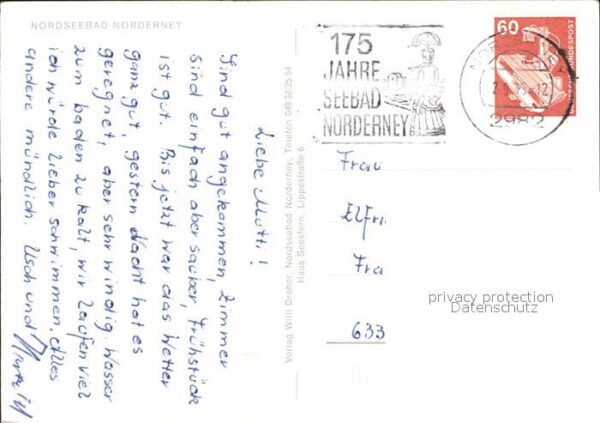 NORDSEEBAD NORDERNEY
Liebe Mutti!
Sind gut angekommen, Zimmer
sind einfach aber sauber, Frühstück
ist gut. Bis jetzt war das Wetter
ganz gut, gestern Nacht hat es
geregnet, aber sehr windig. Wasser
zum baden zu kalt, wir laufen viel
ich würde lieber schwimmen. Alles
andere mündlich. Usch und
Verlag Willi Dreher, Nordseebad Norderney, Telefon 049 32 25 64
Haus Seestern, Lippestraße 6
175
JAHRE
SEEBAD
NORDERNEY
60
DEUTSCHE BUNDESPOST
2982
Frau
Elfri
Fra
633
privacy protection
Datenschutz